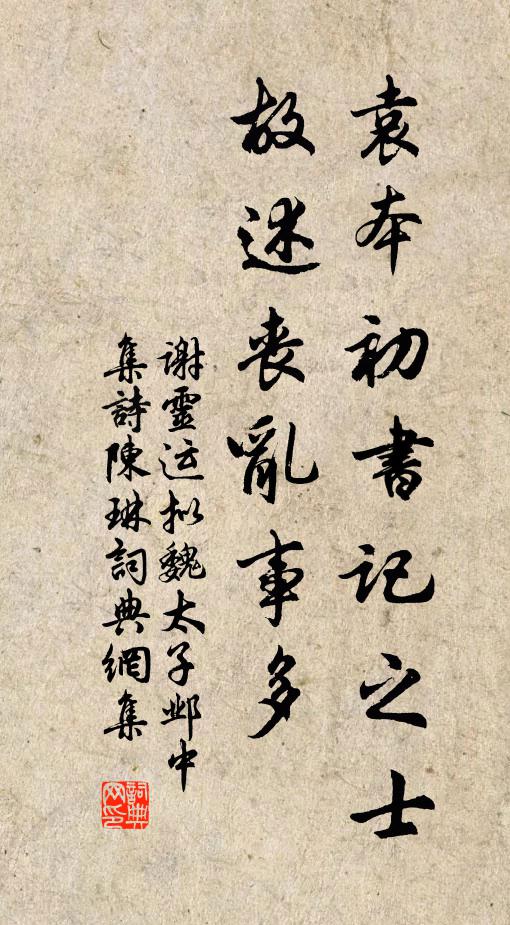 袁本初書記之士
故述喪亂事多
謝靈运拟魏太子邺中
集詩陳琳詞典網集
詞典网印